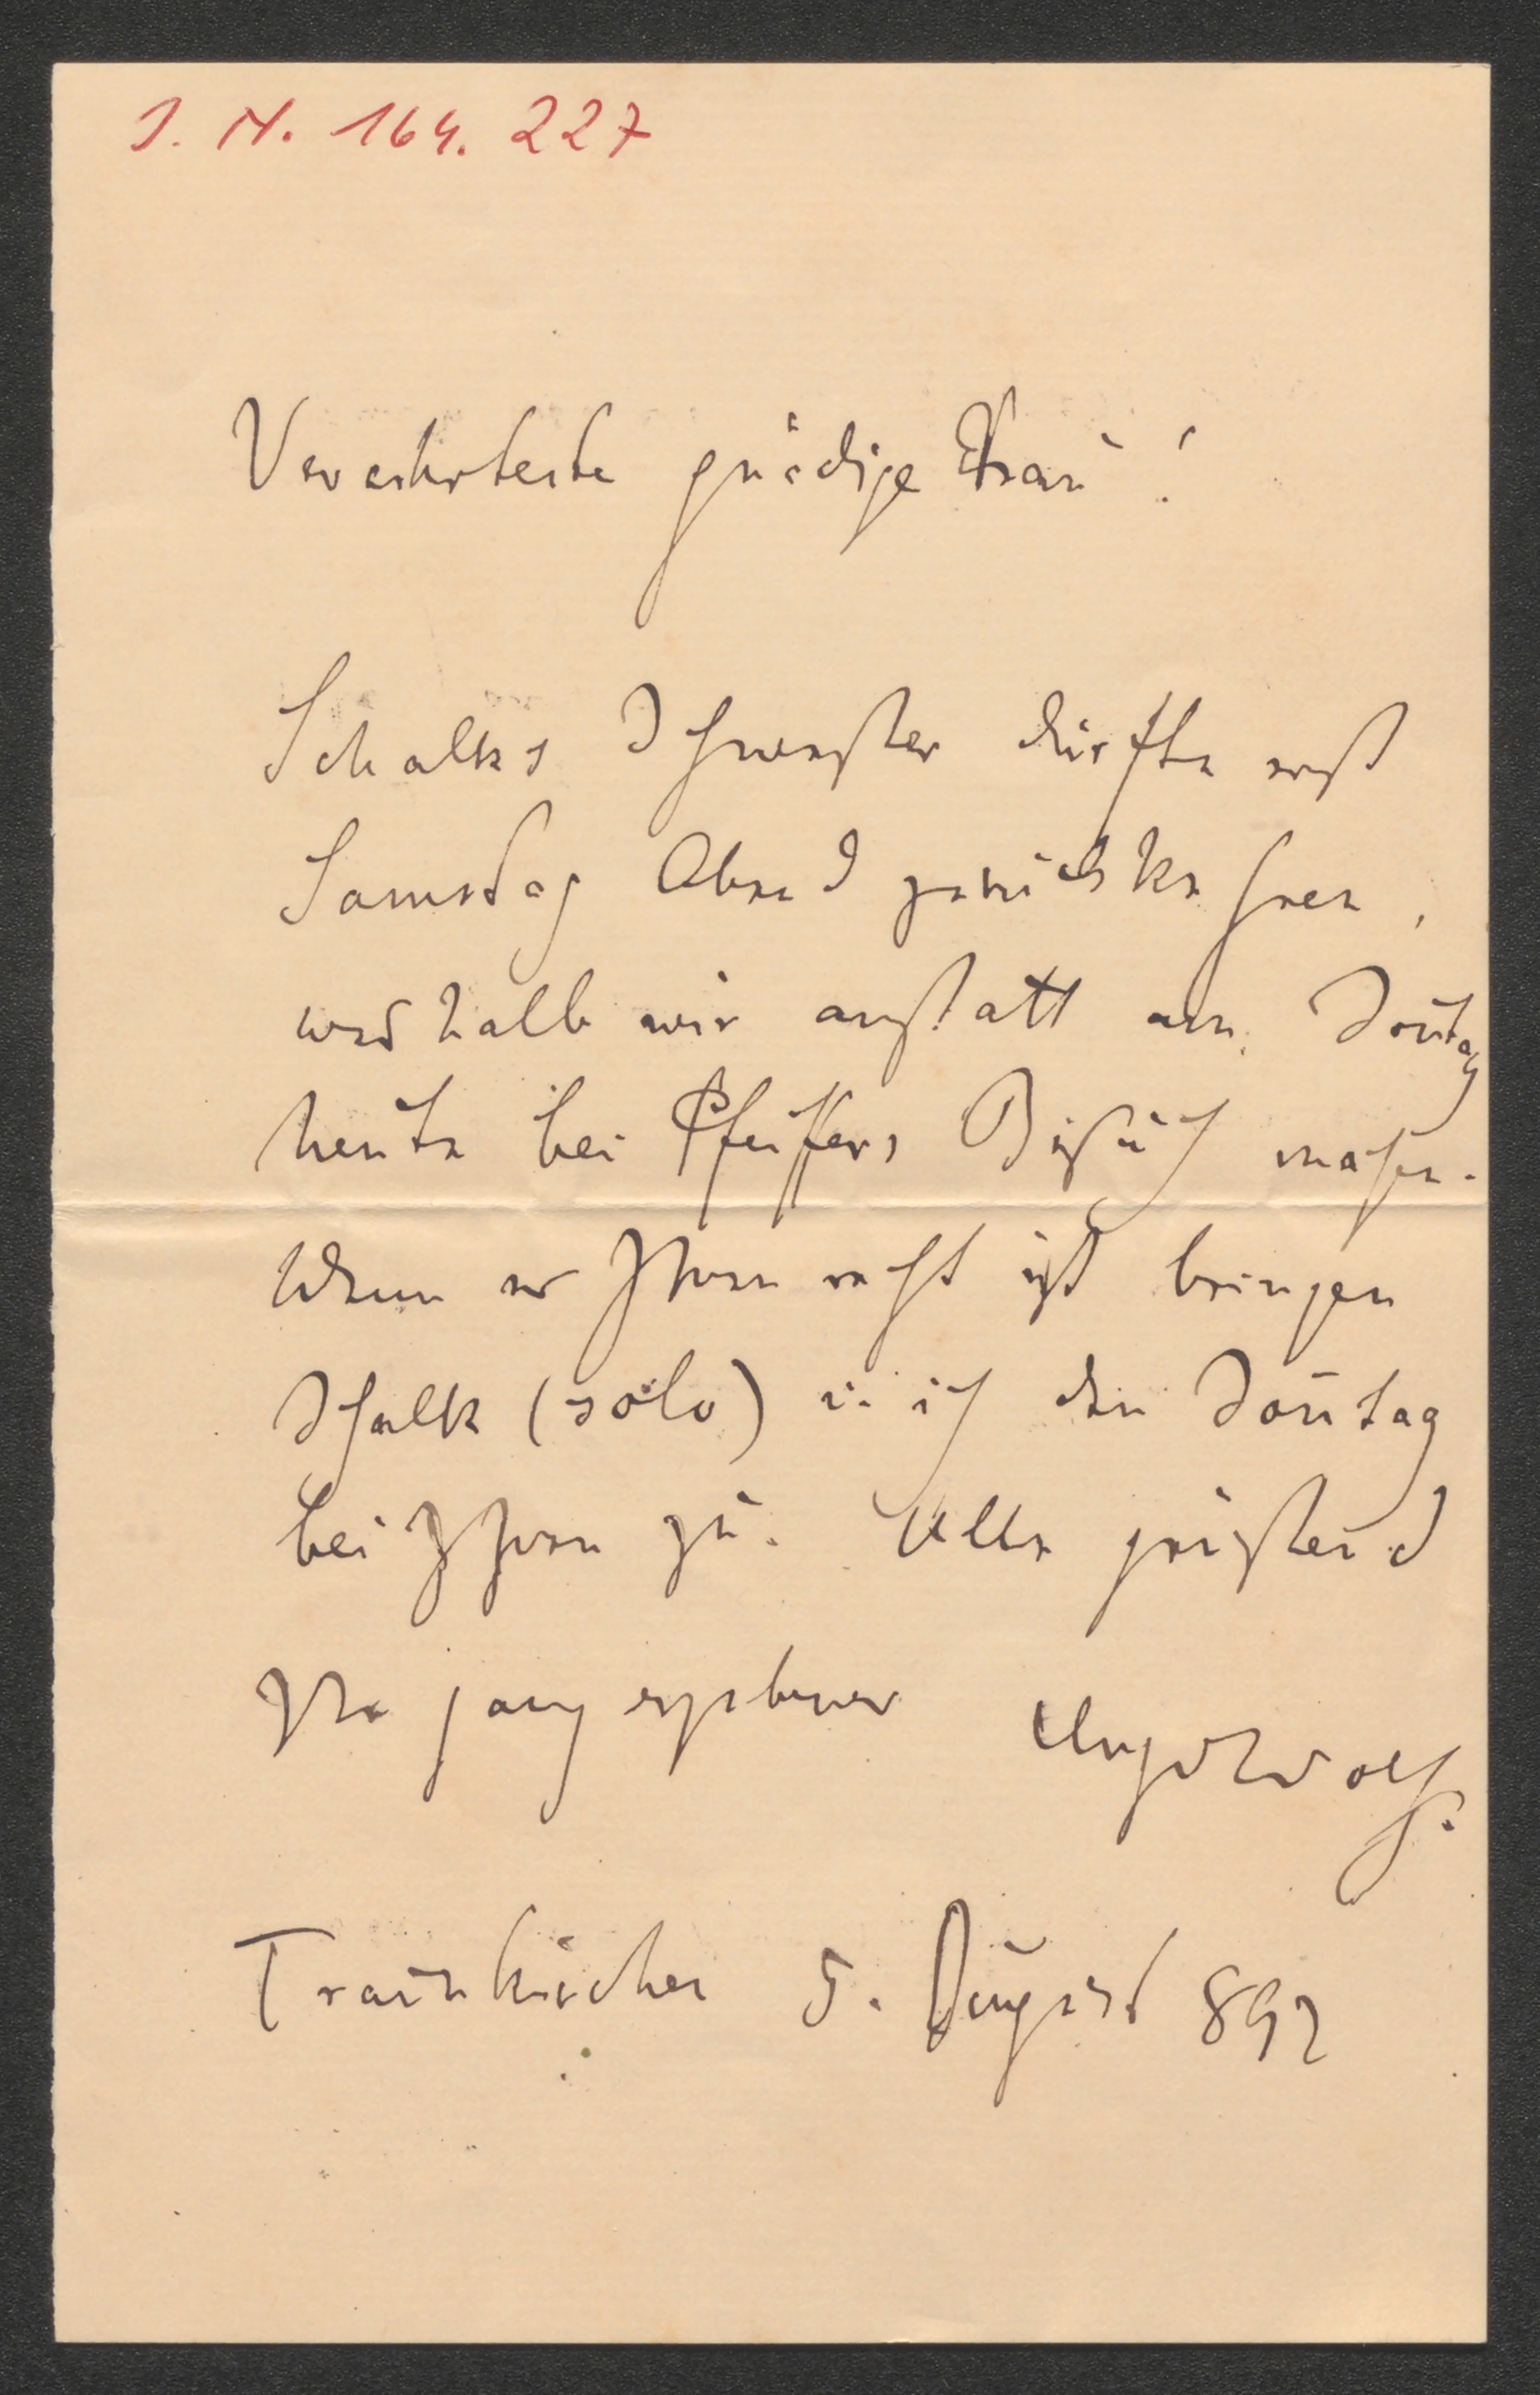 I. N. 164.227
Verehrteste gnädige Frau!
Schalks Schwester dürfte erst
Samstag Abend zurückkehren,
weshalb wir anstatt am Soñtag
heute bei Pfeiffers Besuch machen.
Wenn es Ihnen recht ist bringen
Schalk (solo) u. ich den Soñtag
bei Ihnen zu. Alle grüßend
Ihr ganz ergebener Hugo Wolf.
Traunkirchen 5. August 892